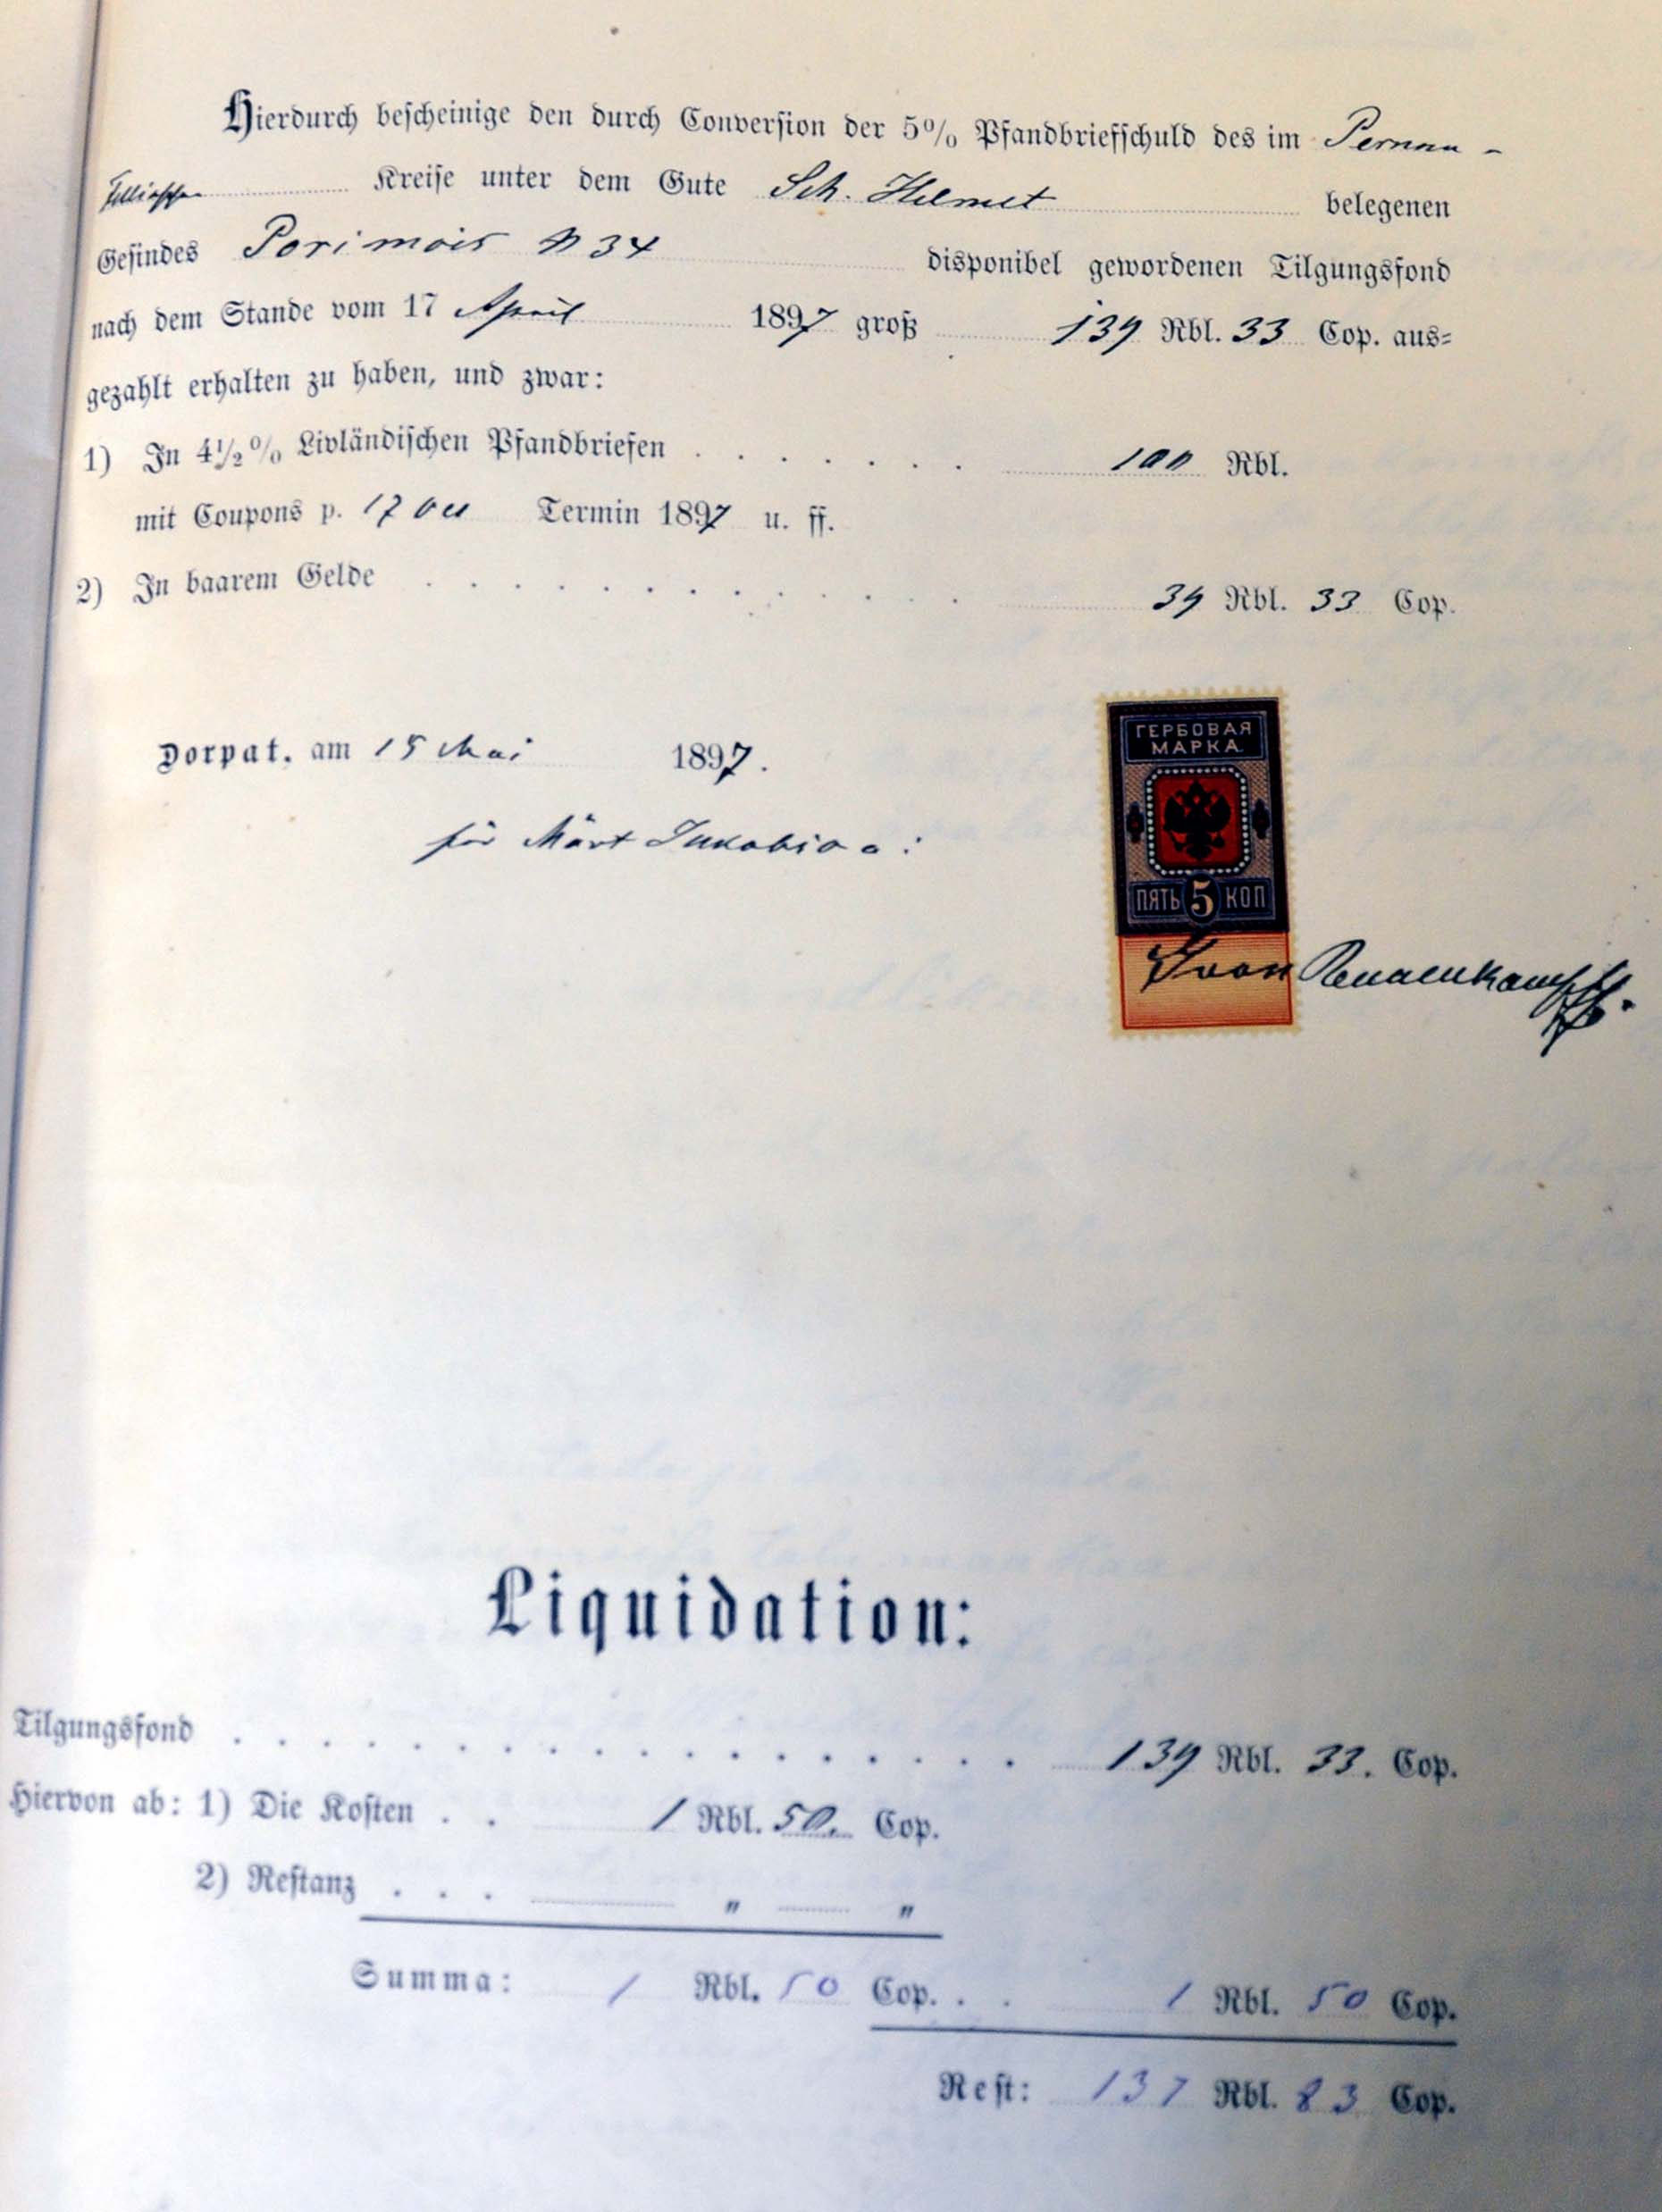 Hierdurch bescheinige den durch Conversion der 5% Pfandbriefschuld des im Pernau-
Fellinschen Kreise unter dem Gute Sch. Helmet belegenen
Gesindes Porimois № 34 disponibel gewordenen Tilgungsfond
nach dem Stande vom 17 April 1897 groß 139 Rbl. 33 Cop. aus=
gezahlt erhalten zu haben, und zwar:
1) In 4½% Livländischen Pfandbriefen . . . . . . . 100 Rbl.
mit Coupons p. 17 Oct Termin 1897 u. ff.
2) In baarem Gelde . . . . . . . . . . . . . 39 Rbl. 33 Cop.
Dorpat, am 15 Mai 1897.
ГЕРБОВАЯ
МАРКА
ПЯТЬ 5 КОП
für Märt
Liquidation:
Tilgungsfond . . . . . . . . . . . . . . . . . . 139 Rbl. 33. Cop.
Hiervon ab: 1) Die Kosten . . 1 Rbl. 50. Cop.
2) Restanz . . . " "
Summa: 1 Rbl. 50 Cop. . . 1 Rbl. 50 Cop.
Rest: 137 Rbl. 83 Cop.